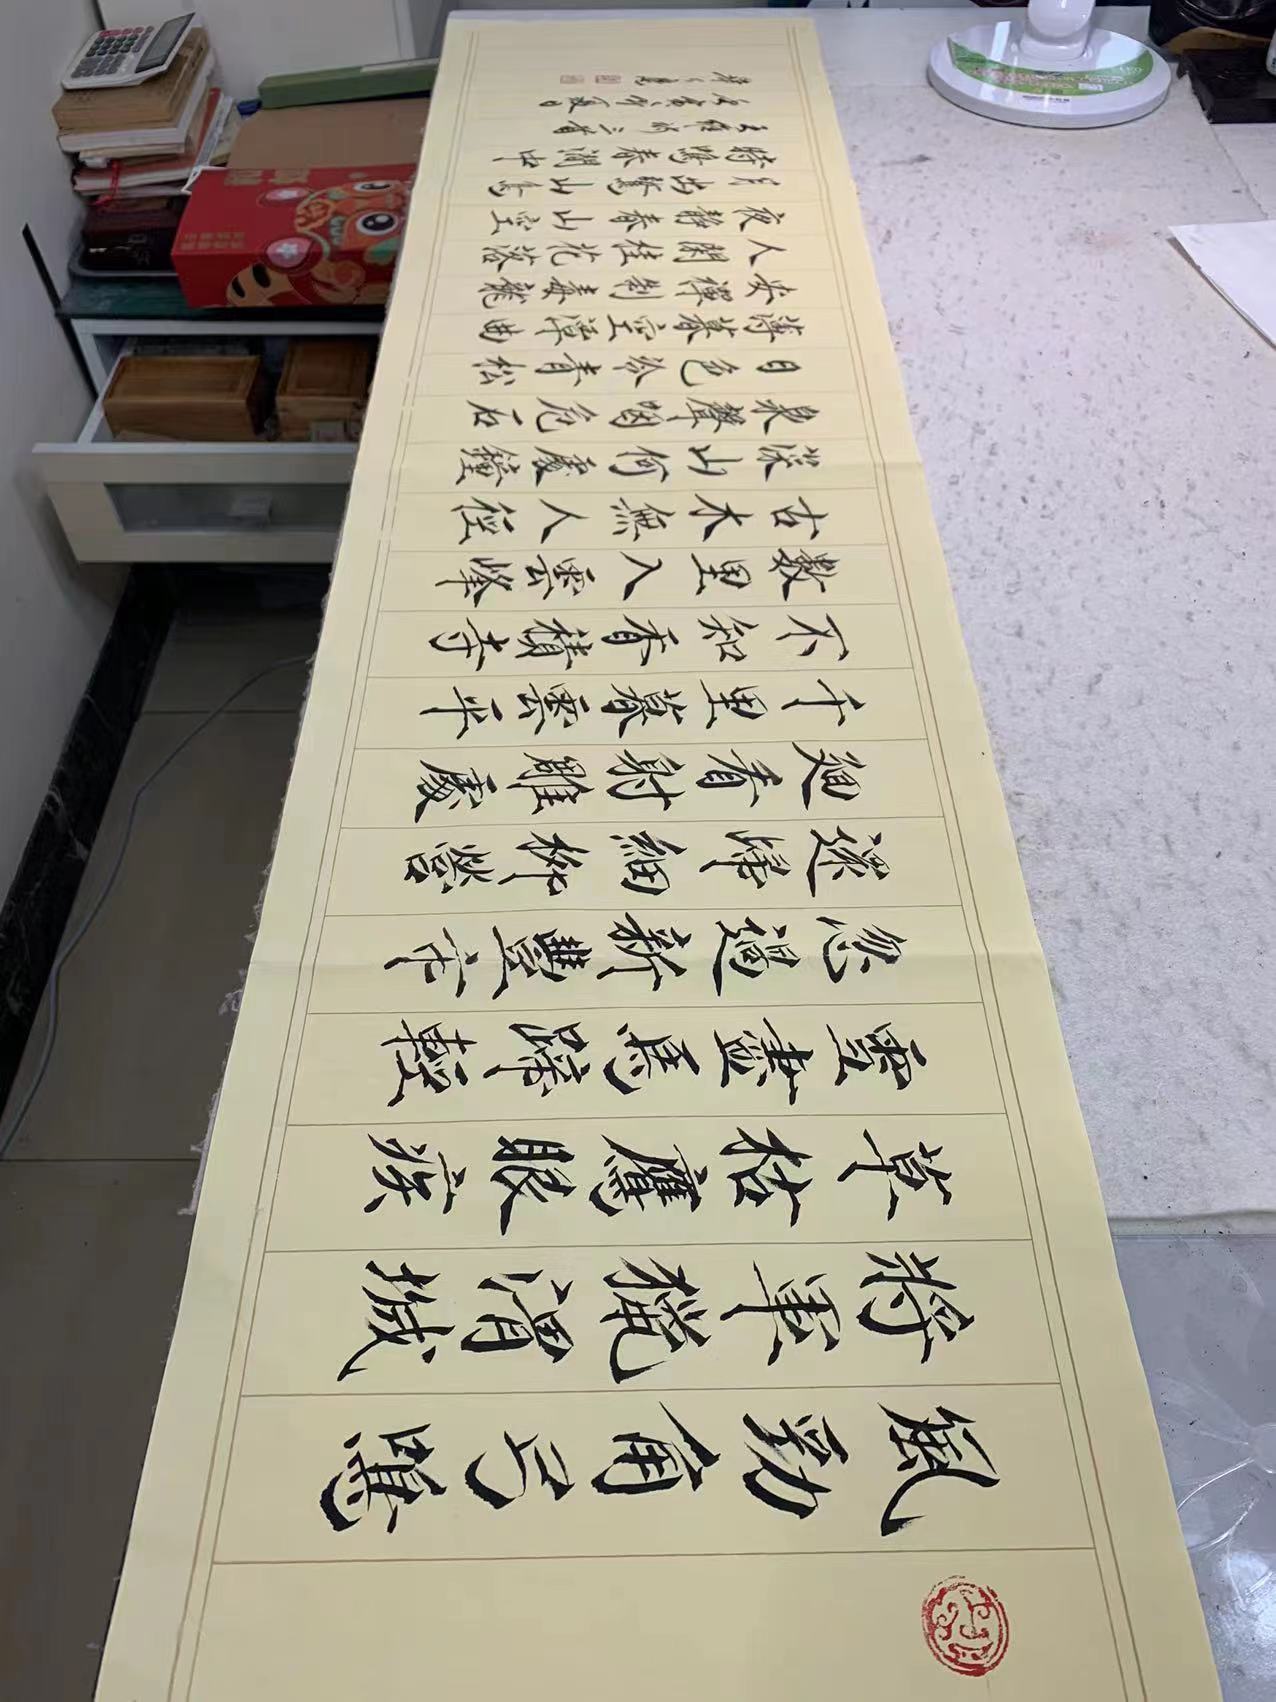 風勁角弓鳴
將軍獵渭城
草枯鷹眼疾
雪盡馬蹄輕
忽過新豐市
還歸細柳營
迴看射雕處
千里暮雲平
不知香積寺
數里入雲峰
古木無人徑
深山何處鐘
泉聲咽危石
日色冷青松
薄暮空潭曲
安禪制毒龍
人閑桂花落
夜静春山空
月出驚山鳥
時鳴春澗中
王維詩三首
夏日